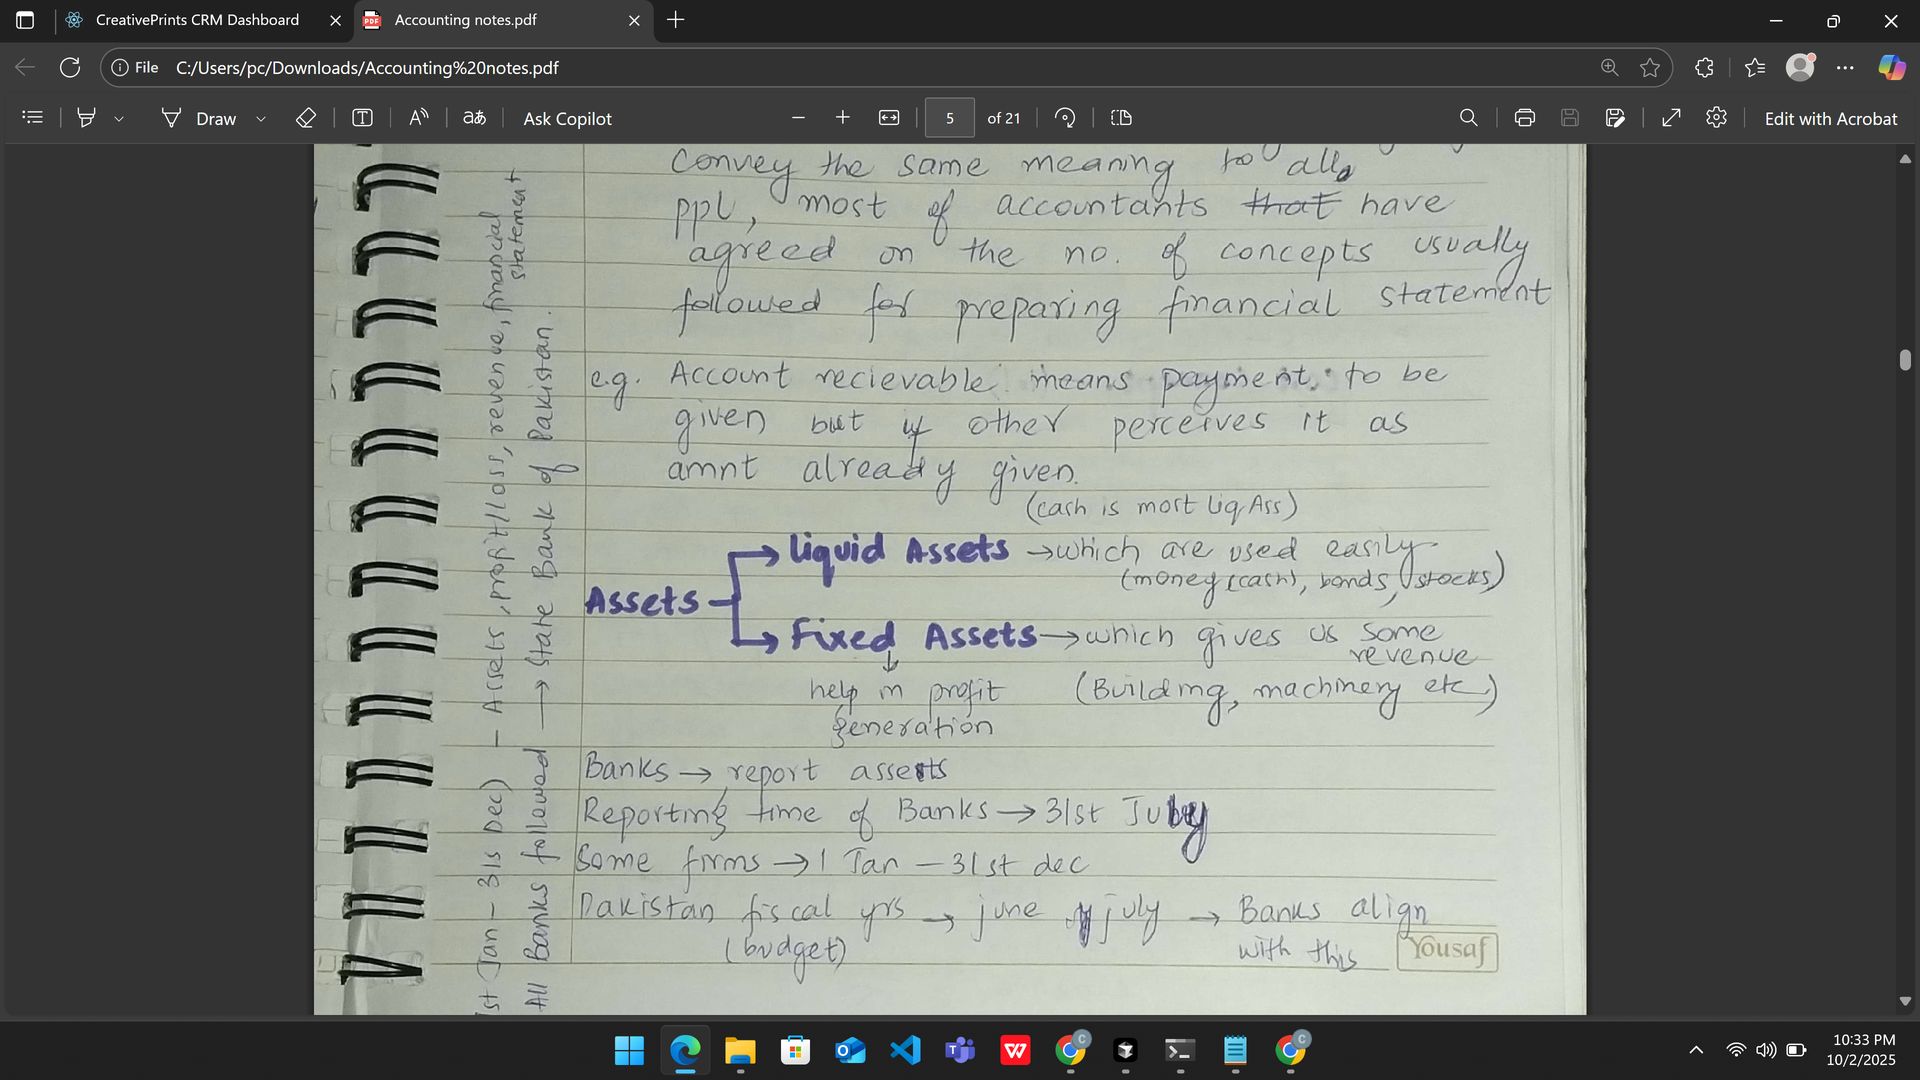 CreativePrints CRM Dashboard
Accounting notes.pdf
File
C:/Users/pc/Downloads/Accounting%20notes.pdf
Draw
Ask Copilot
5
of 21
Edit with Acrobat
Convey the same meaning to all
ppl, most of accountants that have
agreed on the no. of concepts usually
followed for preparing financial statement
e.g. Account recievable means payment to be
given but if other perceives it as
amnt already given.
(cash is most Liq Ass)
Assets
Liquid Assets → which are used easily
(money (cash), bonds, stocks)
Fixed Assets → which gives us some
revenue
↓
help in profit
generation
(Building, machinery etc)
Banks → report assets
Reporting time of Banks → 31st July
Some firms → 1 Jan – 31st dec
Pakistan fiscal yrs → june july → Banks align
(budget)
with this
Yousaf
1st Jan – 31s Dec) – Assets, profit/loss, revenue, financial
statement
All Banks followed → State Bank of Pakistan.
10:33 PM
10/2/2025